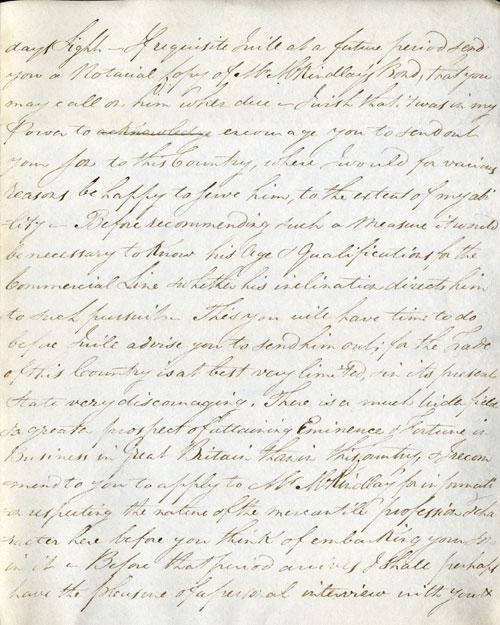 days sight. — If requisite I will at a future period send
you a Notarial Copy of Mr McKindlay's Bond, that you
may call on him when due — I wish that it was in my
Power to acknowledge encourage you to send out
your Son to this Country, where I would for various
reasons be happy to serve him, to the extent of my abi-
lity — Before recommending such a Measure it would
be necessary to know his Age & Qualifications for the
Commercial Line & whether his inclination directs him
to such pursuits — This you will have time to do
before I will advise you to send him out; for the Trade
of this Country is at best very limited, & in its present
State very discouraging. There is a much wider field
& a greater prospect of attaining Eminence & Fortune in
Business in Great Britain than in this Country, & I recom
=mend to you to apply to Mr McKindlay for informati-
on respecting the nature of the mercantile profession & cha-
racter here before you think of embarking your Son
in it — Before that period arrives I shall perhaps
have the pleasure of a personal interview with you &